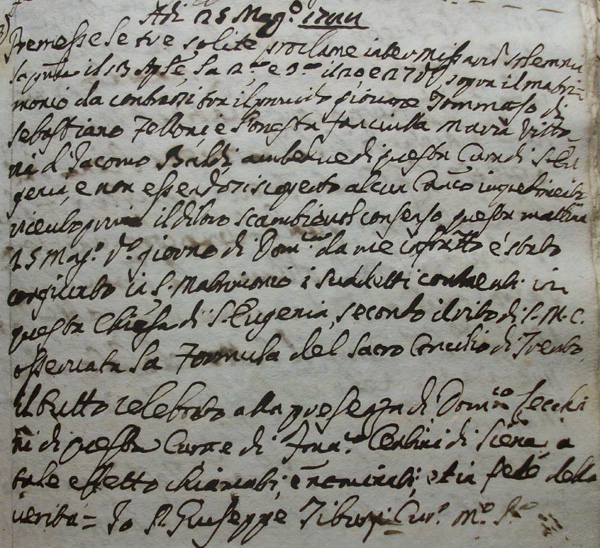 Adì 25 Magᵒ 1744
Premesse le tre solite proclame inter missarũ solemnia
la pᵐᵃ il 13 Apˡᵉ, la 2ᵈᵃ e 3ᵃ il 20 e 27 dᵒ sopra il matri=
monio da contrarsi tra il giovane Tommaso di
Sebastiano Felloni e l'onesta fanciulla Maria Vitto
ri d Jacomo Baldi, ambedue di questa Cura di S. Eu
genia, e non essendosi scoperto alcun Canᶜᵒ impedimento
ricevuto prima il di loro scambievol consenso questa mattina
25 Magᵒ dᵒ giorno di Domᶜᵃ da me infrᵗᵗᵒ è stato
congiunto in S. Matrimonio i suddetti contraenti in
questa Chiesa di S. Eugenia, secondo il rito di S. M. C.
osservata la Formula del Sacro Concilio di Trento
il tutto celebrato alla presenza di Domᶜᵒ Cecchi
ni di questa Cura e di Franᶜᵒ Cerbini di Siena, a
tale effetto chiamati, e nominati, et in fede della
verità = Io P. Giuseppe Tiburzi Curᵒ mᵒ pᵒ